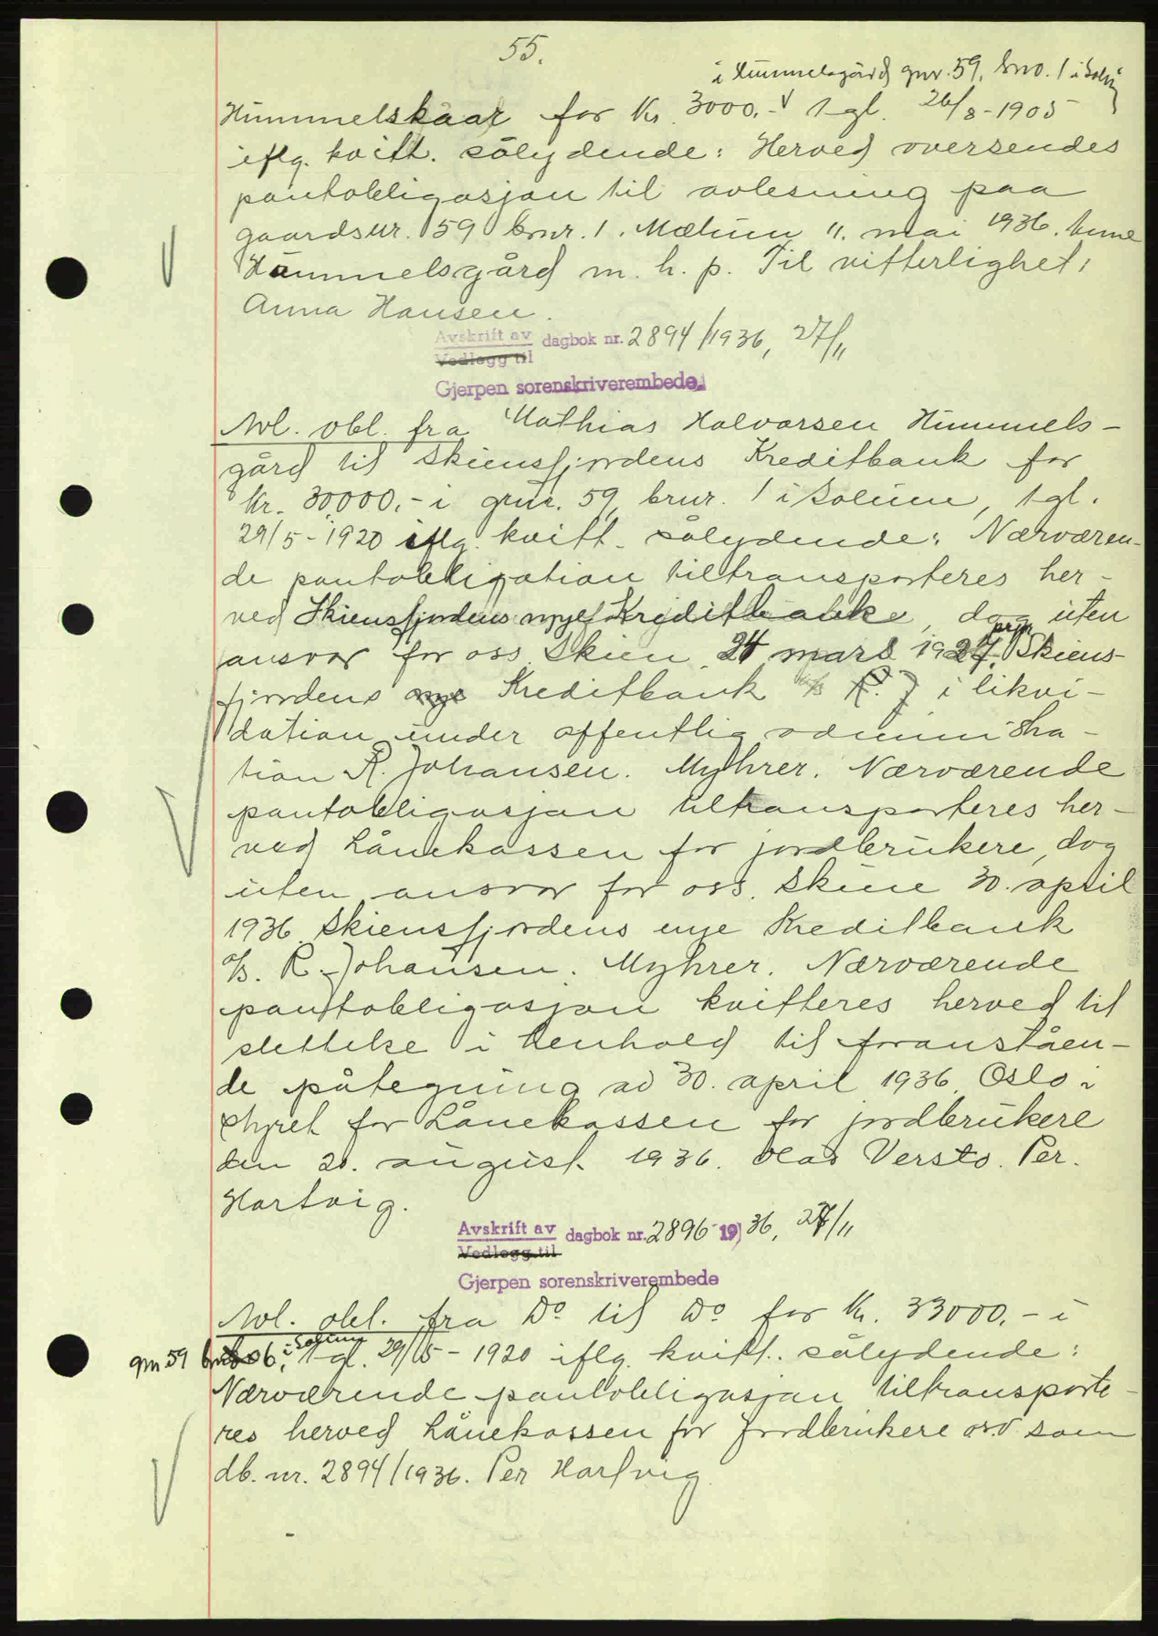 55.
i Himmelsgård gnr. 59, bno. 1 i Solum
Himmelskaar for Kr. 3000.- tgl. 26/8-1905
iflg. kvitt. sålydende: Herved oversendes
pantobligasjon til avlesning paa
gaardsnr. 59 bnr. 1. Mælum 11. mai 1936. Anne
Himmelsgård m. h. p. Til vitterlighet:
Anna Hansen.
Avskrift av dagbok nr. 2894/1936, 27/11
Vedlegg til
Gjerpen sorenskriverembede
Avl. obl. fra Mathias Halvorsen Himmels-
gård til Skiensfjordens Kreditbank for
Kr. 30000.- i gnr. 59, brnr. 1 i Solum, tgl.
29/5-1920 iflg. kvitt. sålydende: Nærværen-
de pantobligation tiltransporteres her-
ved Skiensfjordens nye Kreditbank, dog uten
ansvar for oss. Skien 24 mars 1927. Skiens-
fjordens Kreditbank i likvi-
dation under offentlig administra-
tion R. Johansen. Myhrer. Nærværende
pantobligasjon tiltransporteres her-
ved Lånekassen for jordbrukere, dog
uten ansvar for oss. Skien 30. april
1936. Skiensfjordens nye Kreditbank
A/S. R. Johansen. Myhrer. Nærværende
pantobligasjon kvitteres herved til
slettelse i henhold til foranståen-
de påtegning av 30. april 1936. Oslo i
styret for Lånekassen for jordbrukere
den 20. august 1936. Olav Versto. Per.
Hartvig.
Avskrift av dagbok nr. 2896 1936, 27/11
Vedlegg til
Gjerpen sorenskriverembede
Avl. obl. fra Do til Do for Kr. 33000.- i
gnr 59 bnr 6, i Solum tgl. 29/5-1920 iflg. kvitt. sålydende:
Nærværende pantobligasjon tiltransporte-
res herved Lånekassen for jordbrukere osv som
db. nr. 2894/1936. Per Hartvig